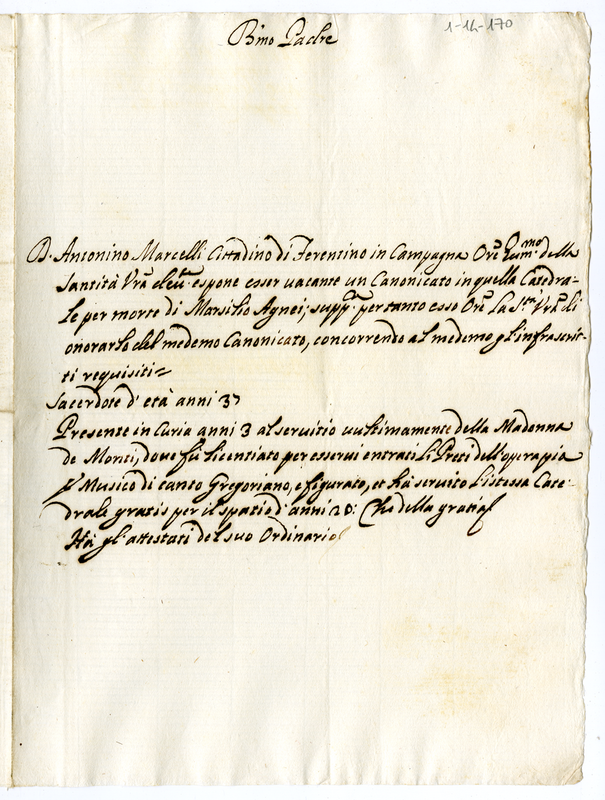 Bmo Padre
1-14-170
D. Antonino Marcelli Cittadino di Ferentino in Campagna Ore Hummo della
Santità Vra espone esser vacante un Canonicato in quella Catedra-
le per morte di Marsilio Agnei; suppca per tanto esso Ore la Stà Vra di
onorarlo del medemo Canonicato, concorrendo al medemo gl'infrascrit-
ti requisiti=
Sacerdote d'età anni 37
Presente in Curia anni 3 al servitio ultimamente della Madonna
de Monti, dove fù licentiato per esservi entrati li Preti dell'opera pia
Musico di canto Gregoriano, e figurato, et hà servito l'istessa Cate-
drale gratis per il spatio d'anni 20: Che della gratia
Hà gl'attestati del suo Ordinario